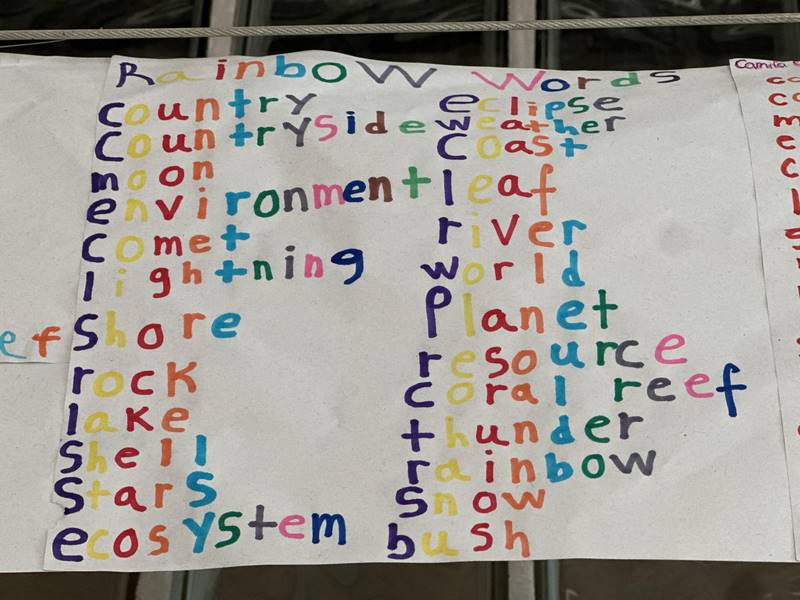 Rainbow Words
country
countryside
moon
environment
comet
lightning
shore
rock
lake
shell
stars
ecosystem
eclipse
weather
coast
leaf
river
world
Planet
resource
coral reef
thunder
rainbow
snow
bush
ef
Camila